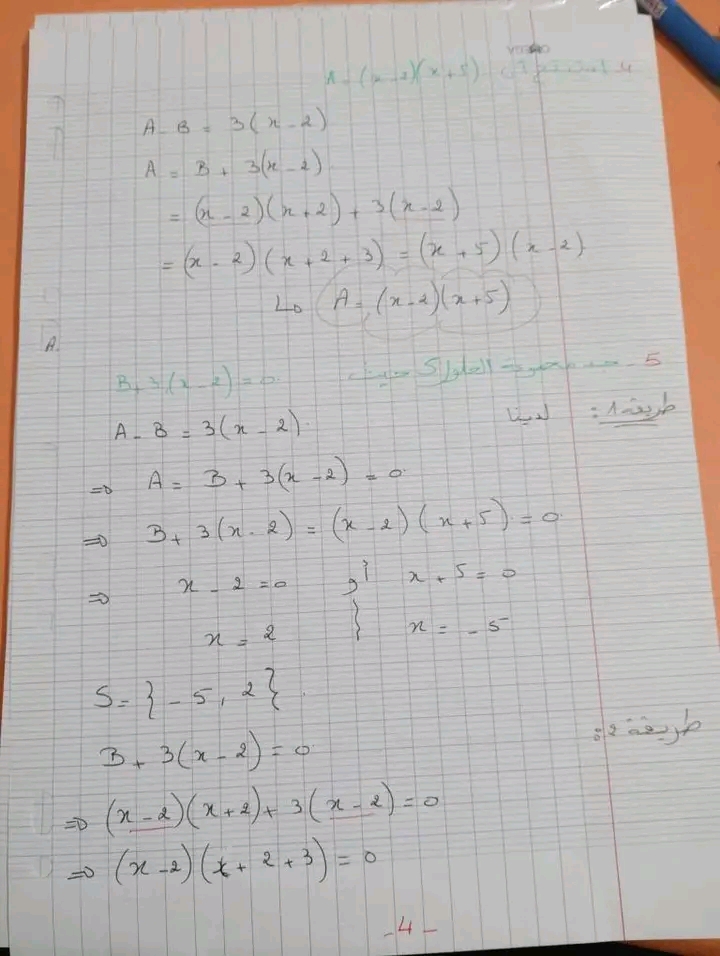 4 - استنتج أن A = (x-2)(x+5)
A - B = 3(x-2)
A = B + 3(x-2)
= (x-2)(x+2) + 3(x-2)
= (x-2)(x+2+3) = (x+5)(x-2)
A = (x-2)(x+5)
A
5 - جد مجموعة الحلول S حيث B+3(x-2)=0
طريقة 1: لدينا
A - B = 3(x-2).
⇒ A = B + 3(x-2) = 0
⇒ B + 3(x-2) = (x-2)(x+5) = 0
⇒ x-2=0 أو x+5=0
x = 2 } x = -5
S = {-5, 2}.
طريقة 2:
B + 3(x-2) = 0
⇒ (x-2)(x+2)+3(x-2)=0
⇒ (x-2)(x+2+3)=0
-4-